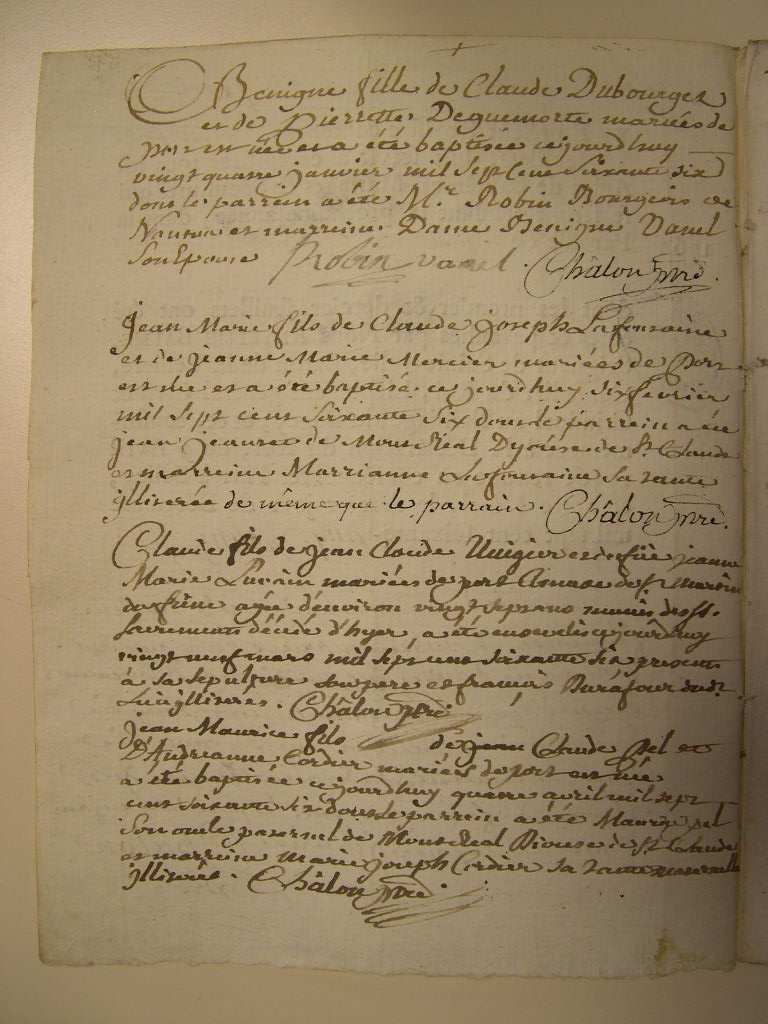 Benigne fille de Claude Dubourget
et de Pierrette Deguemorte mariées de
port est née et a été baptisée cejourdhuy
vingt quatre janvier mil sept cent soixante six
dont le parrein a été Mr. Robin Bourgeois de
Nantua et marreine Dame Benigne Vanel
son Epouse Robin vanel. Châlon ptre.
Jean Marie fils de Claude joseph Lafontaine
et de jeanne Marie Mercier mariées de Port
est né et a été baptisé ce jourdhuy six fevrier
mil sept cent soixante six dont le parrein a été
jean jeantet de Mont Real Dyocése de St Claude
et marreine Marrianne Lafontaine sa tante
jlliterée de même que le parrain. Châlon ptre.
Claude fils de jean Claude Uuigier et de jeanne
Marie mariées de port de St Martin
du frêne agée d'environ vingt sept ans munis des SS.
sacrements décédé d'hyer, a été ensevelis cejourdhuy
vingt neuf mars mil sept cent soixante six presents
à sa sepulture son pere et françois Burafour dud.
Lieu jlliteres. Châlon ptre.
jean Maurice fils de jean Claude Pel et
D'Andreanne Cordier mariées de port est née
a été baptisée cejourdhuy quatre avril mil sept
cent soixante six dont le parrein a été Maurice pel
son oncle paternel de Mont Real Diocese de St Claude
et marreine marie joseph Cordier sa tante maternelle
jlliterés. Châlon ptre.